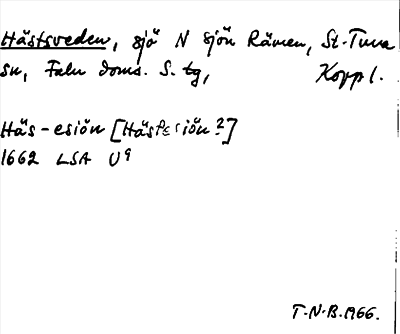 Hästsveden, sjö N sjön Rämen, St. Tuna
sn, Falu doms. S. tg, Koppl.
Häs-esiön [Hästesiön?]
1662 LSA U9
T.N.B. 1966.